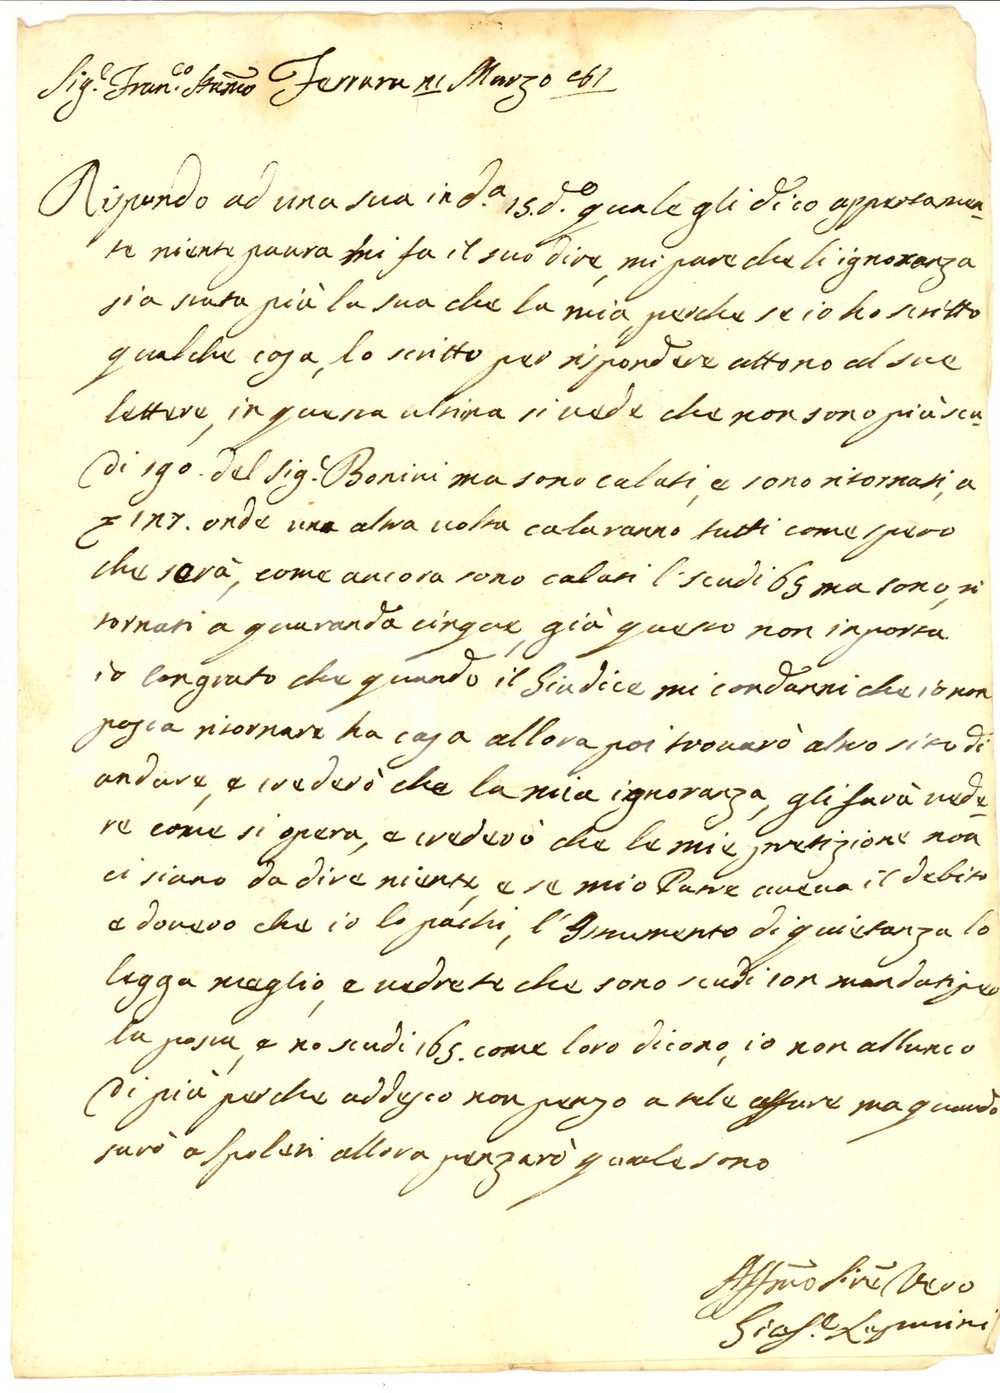 Sig.e Fran.co Ferrara 21 Marzo 1761
Rispondo ad una sua in d.a 15. d.o quale gli dico appertamen=
te niente paura mi fa il suo dire, mi pare che li ignoranza
sia stata più la sua che la mia, perche se io ho scritto
qualche cosa, lo scritto per rispondere attono al sue
lettere, in questa ultima si vede che non sono più scu=
di 190. del Sig.e Bonini ma sono calati, e sono ritornati, a
127. onde una altra volta calaranno tutti come spero
che serà, come ancora sono calati l scudi 65 ma sono, ri
tornati a quaranda cinque, già questo non inporta
io congrato che quando il Giudice mi condanni che io non
posca ritornare ha casa allora poi trovarò altro sito di
andare, e crederò che la mia ignoranza, gli farà vede=
re come si opera, e crederò che le mie pretizione non
ci siano da dire niente, e se mio Patre aveva il debito
e dovero che io lo pachi, l'Instrumento di quietanza lo
legga meglio, e vedrete che sono scudi mandati per
la posta, e no scudi 165. come loro dicono, io non allunco
di più perche addesco non penzo a tele affare ma quando
sarò a Spoleti allora penzarò quale sono
Aff.mo Ser.e Vero
Gios.e